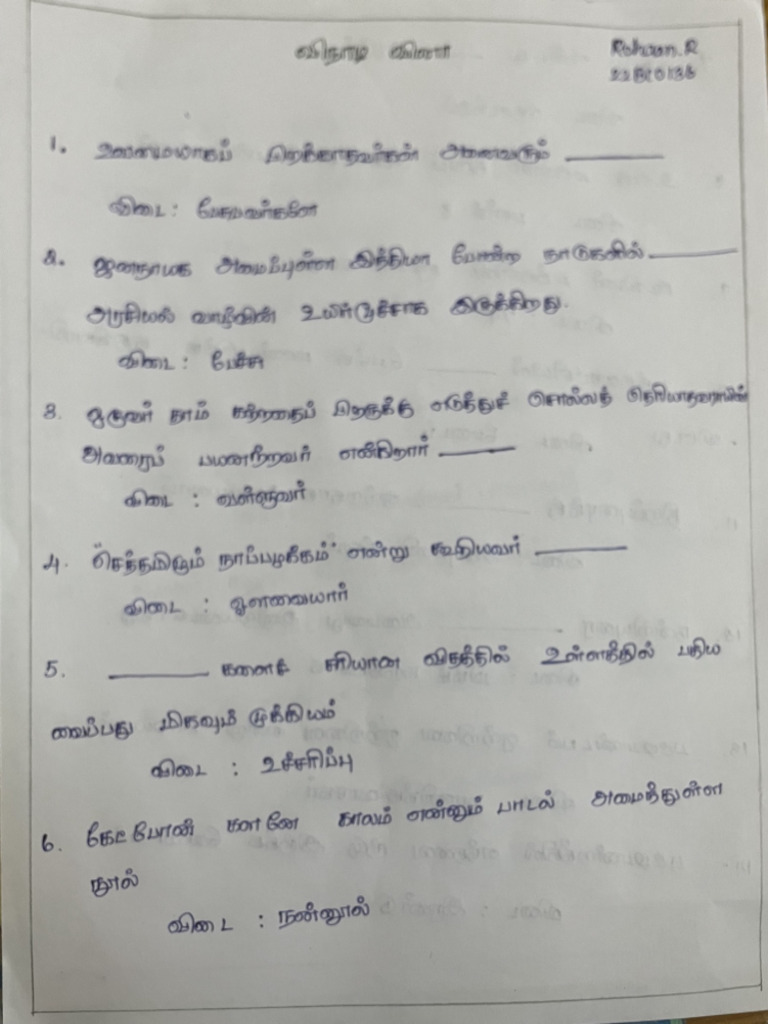 வினாடி வினா
Rohwan.R
1. ஊமையாகப் பிறக்காதவர்கள் அனைவரும் ________
விடை : பேசுபவர்களே
2. ஜனநாயக அமைப்புள்ள இந்தியா போன்ற நாடுகளில் ________
அரசியல் வாழ்வின் உயிர்மூச்சாக இருக்கிறது.
விடை : பேச்சு
3. ஒருவர் தாம் கற்றதைப் பிறருக்கு எடுத்துச் சொல்லத் தெரியாதவராயின்
அவரைப் பயனற்றவர் என்கிறார் ________
விடை : வள்ளுவர்
4. "செந்தமிழும் நாப்பழக்கம்" என்று கூறியவர் ________
விடை : ஔவையார்
5. ________ களைச் சரியான விதத்தில் உள்ளத்தில் பதிய
வைப்பது மிகவும் முக்கியம்
விடை : உச்சரிப்பு
6. கேட்போன் காலம் என்னும் பாடல் அமைந்துள்ள
நூல்
விடை : நன்னூல்